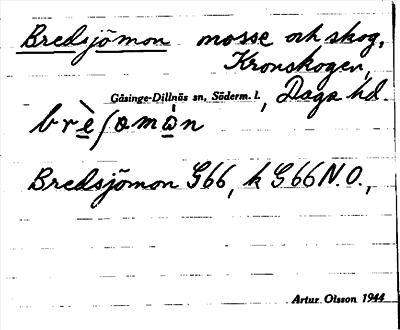 Bredsjömon mosse och skog,
Kronskogen,
Gåsinge-Dillnäs sn, Söderm. l., Daga hd.
brè̲ʃomὼ̲n
Bredsjömon G66, k G66 N.O.,
Artur Olsson 1944